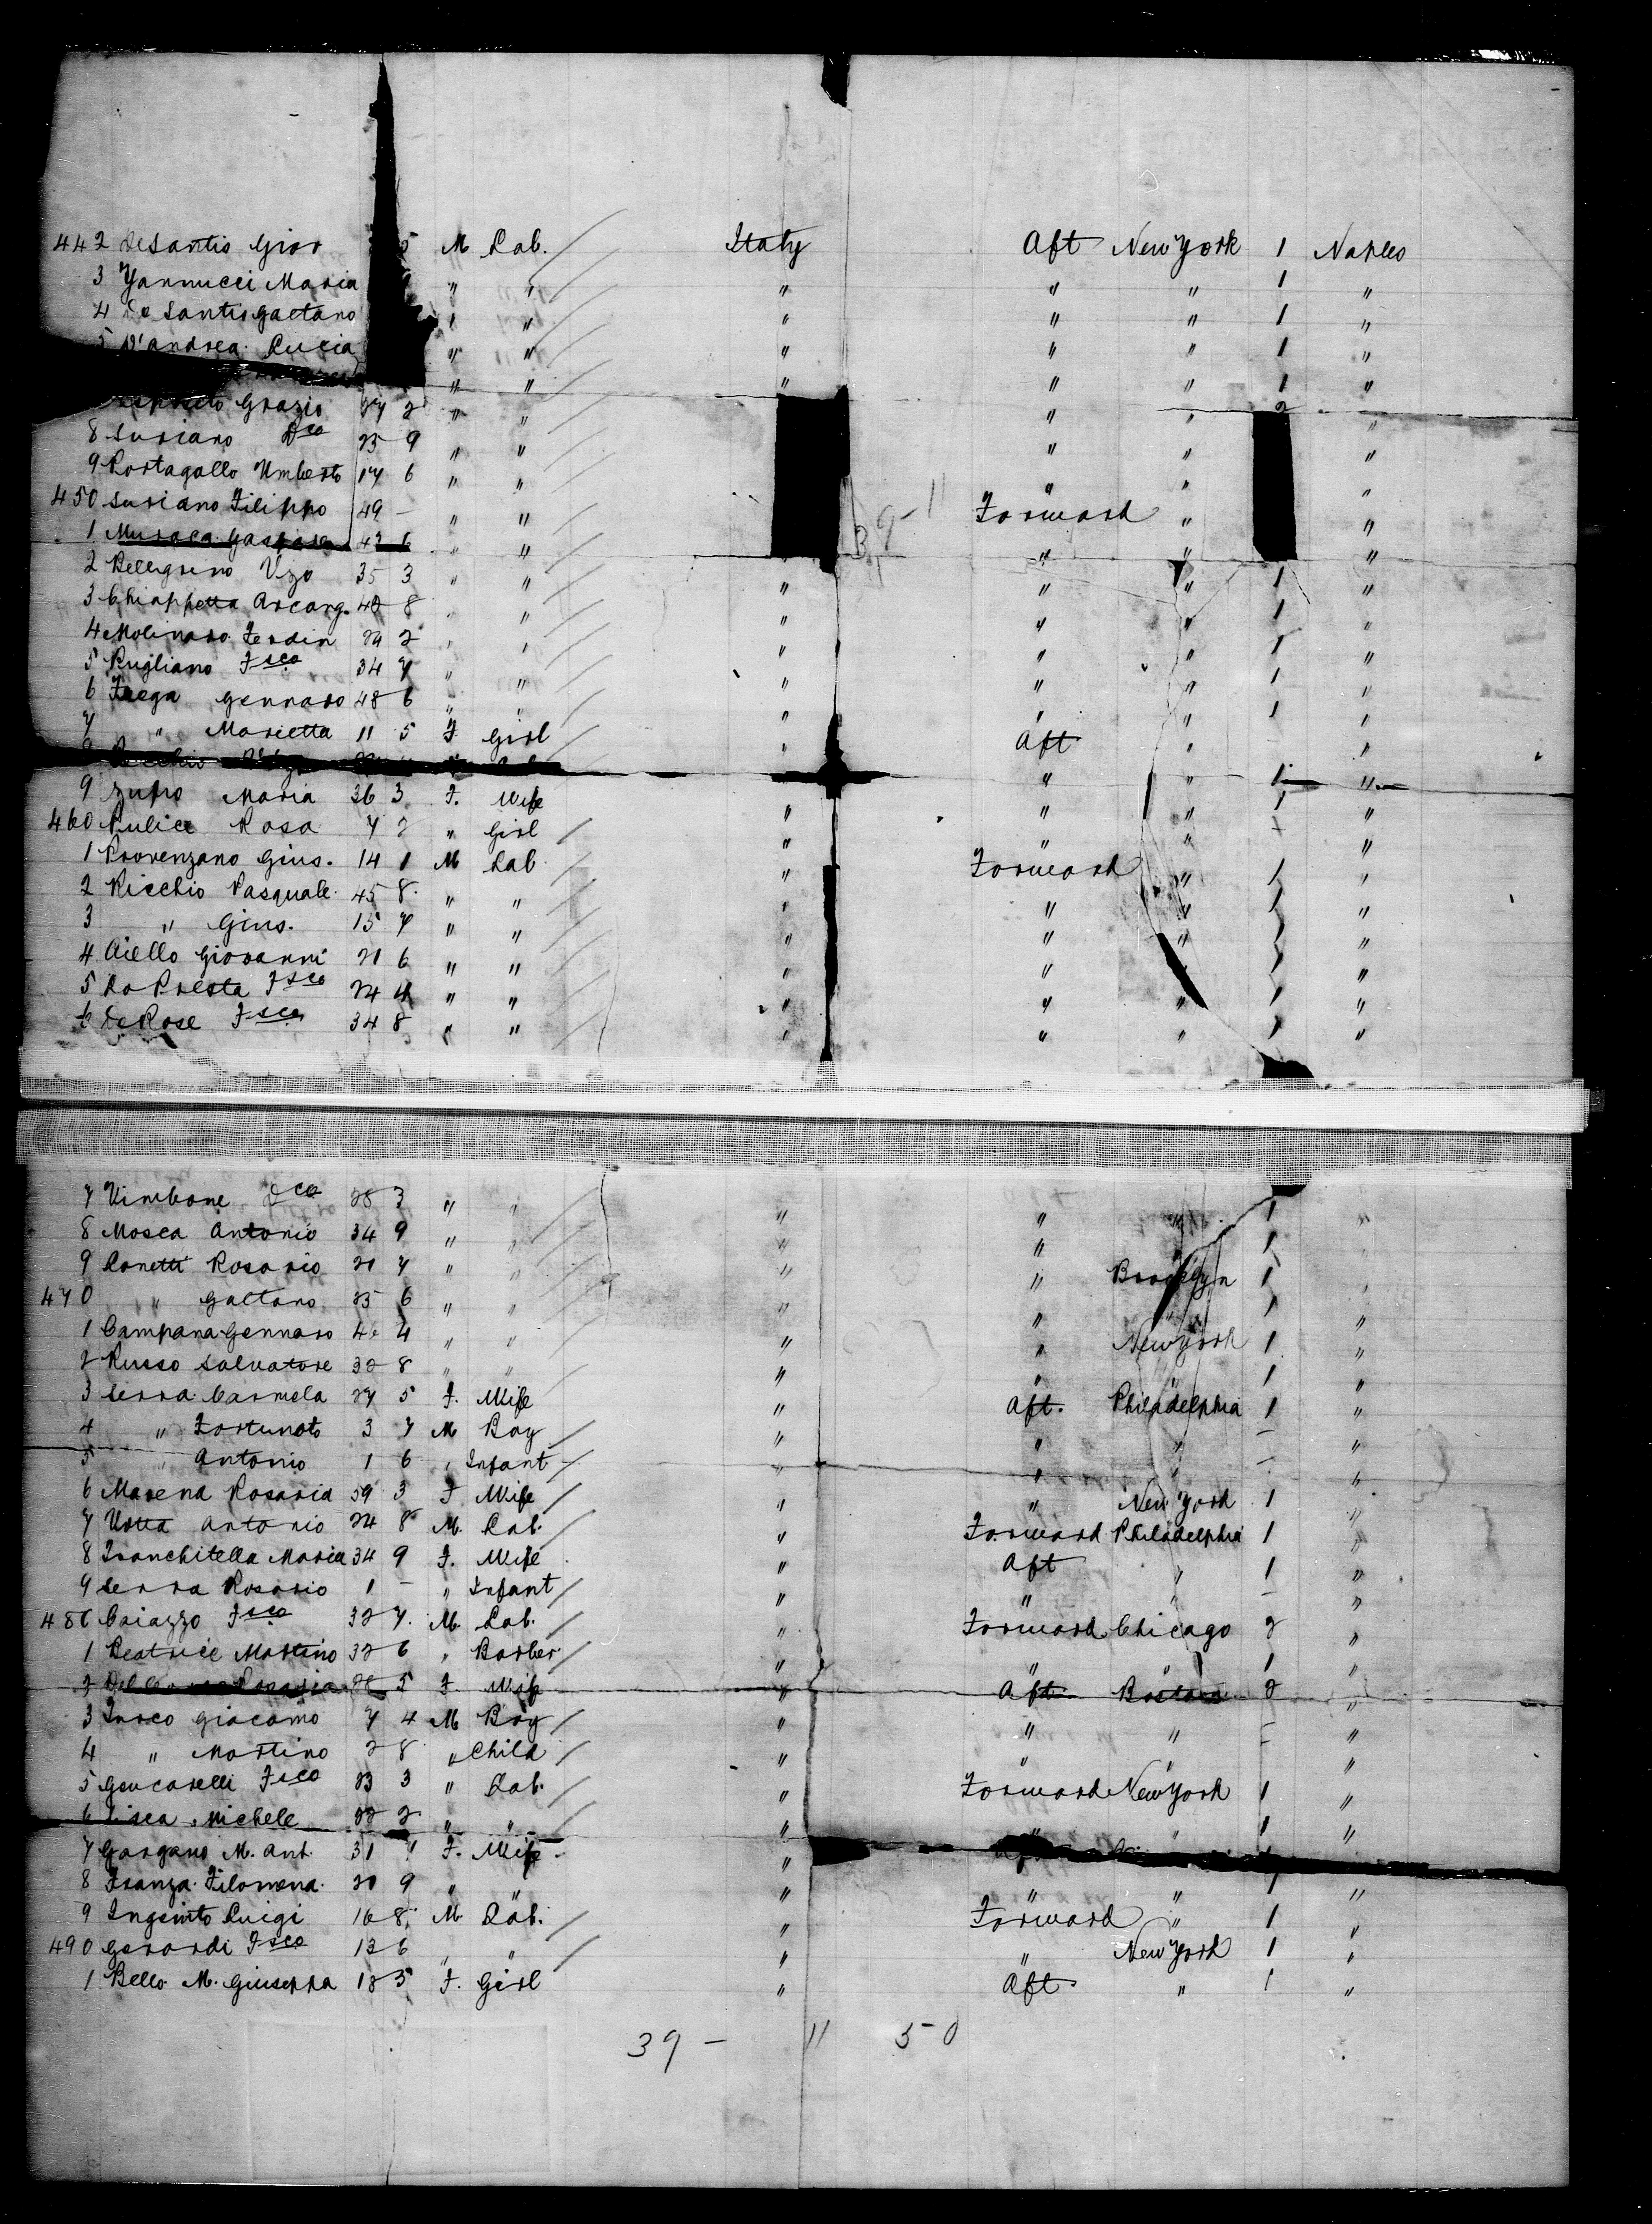 442 DeSantis Giov 5 M Lab. Italy Aft New York 1 Naples
3 Yannucci Maria " " " " " 1 "
4 De Santis Gaetano " " " " 1 "
5 D'andrea Lucia " " " " " 1 "
" " " " " 1 "
Grazio 27 2 " " " " 2 "
8 Suriano Dco 25 9 " " " " "
9 Portagallo Umberto 17 6 " " " " "
450 Suriano Filippo 49 - " " Forward " "
1 Muraca Gaspare 42 6 " " " " "
2 Pellegrino Vzo 35 3 " " " " " 1 "
3 Chiappetta Arcang. 42 8 " " " " " 1 "
4 Molinaro Ferdin 24 2 " " " " " 1 "
5 Pugliano Fsco 34 7 " " " " " 1 "
6 Frega Gennaro 48 6 " " " " " 1 "
7 " Marietta 11 5 F Girl " Aft " - "
" " 1 "
9 Zupo Maria 36 3 F. Wife " " " 1 "
460 Pulice Rosa 7 2 " Girl " " " - "
1 Provenzano Gius. 14 1 M Lab " Forward " 1 "
2 Ricchio Pasquale 45 8 " " " " " 1 "
3 " Gius. 15 7 " " " " " 1 "
4 Aiello Giovanni 21 6 " " " " " 1 "
5 Lo Presta Fsco 24 4 " " " " " 1 "
6 DeRose Fsco 34 8 " " " " " 1 "
7 Vimbone Dco 28 3 " " " " " 1 "
8 Mosca Antonio 34 9 " " " " 1
9 Conetti Rosario 21 7 " " " " Brooklyn 1 "
470 " Gaetano 25 6 " " " " " 1 "
1 Campana Gennaro 4 4 " " " " New York 1 "
2 Russo Salvatore 32 8 " " " " " 1 "
3 Serra Carmela 27 5 F. Wife " Aft. Philadelphia 1 "
4 " Fortunato 3 7 M Boy " " " - "
5 " Antonio 1 6 " Infant " " " - "
6 Marena Rosaria 59 3 F Wife " " New York 1 "
7 Votta Antonio 24 8 M. Lab. " Forward Philadelphia 1 "
8 Franchitella Maria 34 9 F. Wife " Aft " 1 "
9 Serra Rosario 1 - " Infant " " " - "
480 Caiazzo Fsco 32 7 M. Lab. " Forward Chicago 2 "
1 Beatrice Martino 32 6 " Barber " " " 1 "
2 Rosaria 28 5 F Wife " Aft Boston 2 "
3 Turco Giacomo 7 4 M Boy " " " - "
4 " Martino 2 8 " Child " " " "
5 Gencarelli Fsco 23 3 " Lab. " Forward New York 1 "
6 Lisca Michele 22 2 " " " " " 1 "
7 Gargano M. Ant. 31 F. Wife "
8 Franza Filomena 20 9 " " " " " 1 "
9 Ingenito Luigi 16 8 M Lab. " Forward " 1 "
490 Gerardi Fsco 13 6 " " " " New York 1 "
1 Bello M. Giuseppa 18 5 F. Girl " Aft " 1 "
39 - 11 50